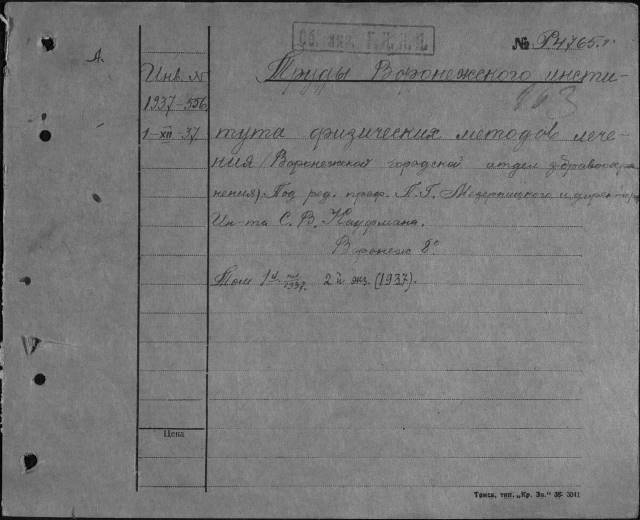 № Р4765.г.
А.
Инв. №
1937-556
1-XII-37
Труды Воронежского инсти-
663
тута физических методов лече-
ния (Воронежской городской отдел здравоохра
нения). Под ред. проф. П.Г. Мезерницкого и директора
Ин-та С. В. Кауфмана.
Воронеж 8°.
Том 1й 1937. 2й экз. (1937).
Цена
Томск, тип. „Кр. Зн." 36 3041